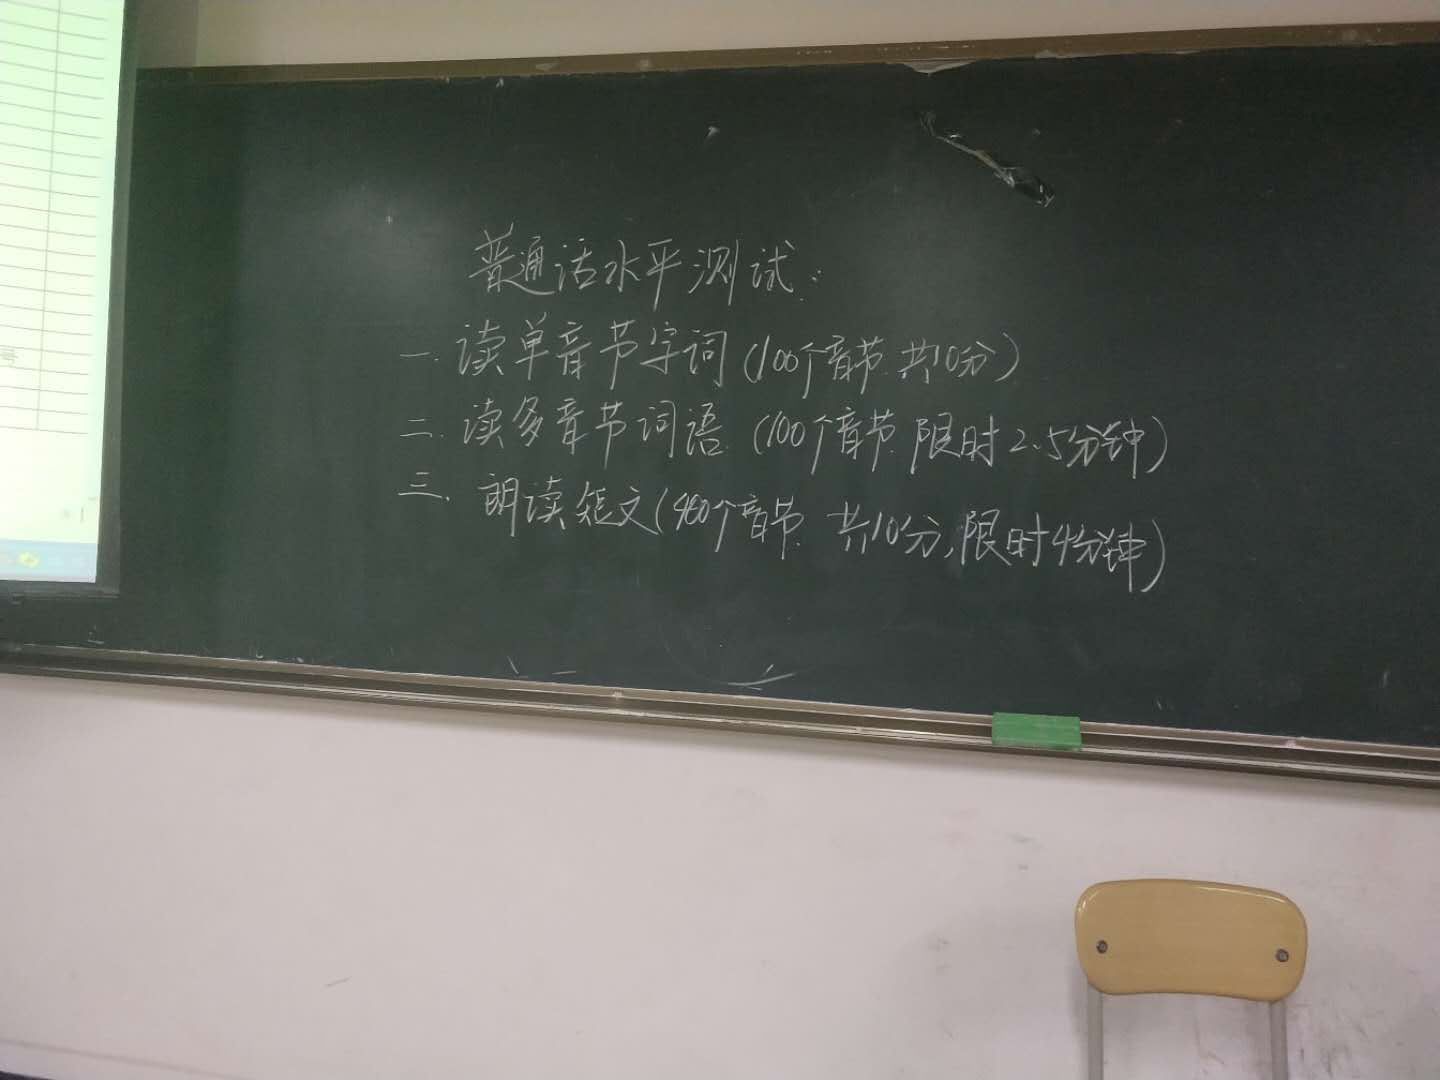 普通话水平测试:
一. 读单音节字词(100个音节.共10分)
二. 读多音节词语.(100个音节.限时2.5分钟)
三. 朗读短文(400个音节. 共10分,限时4分钟)